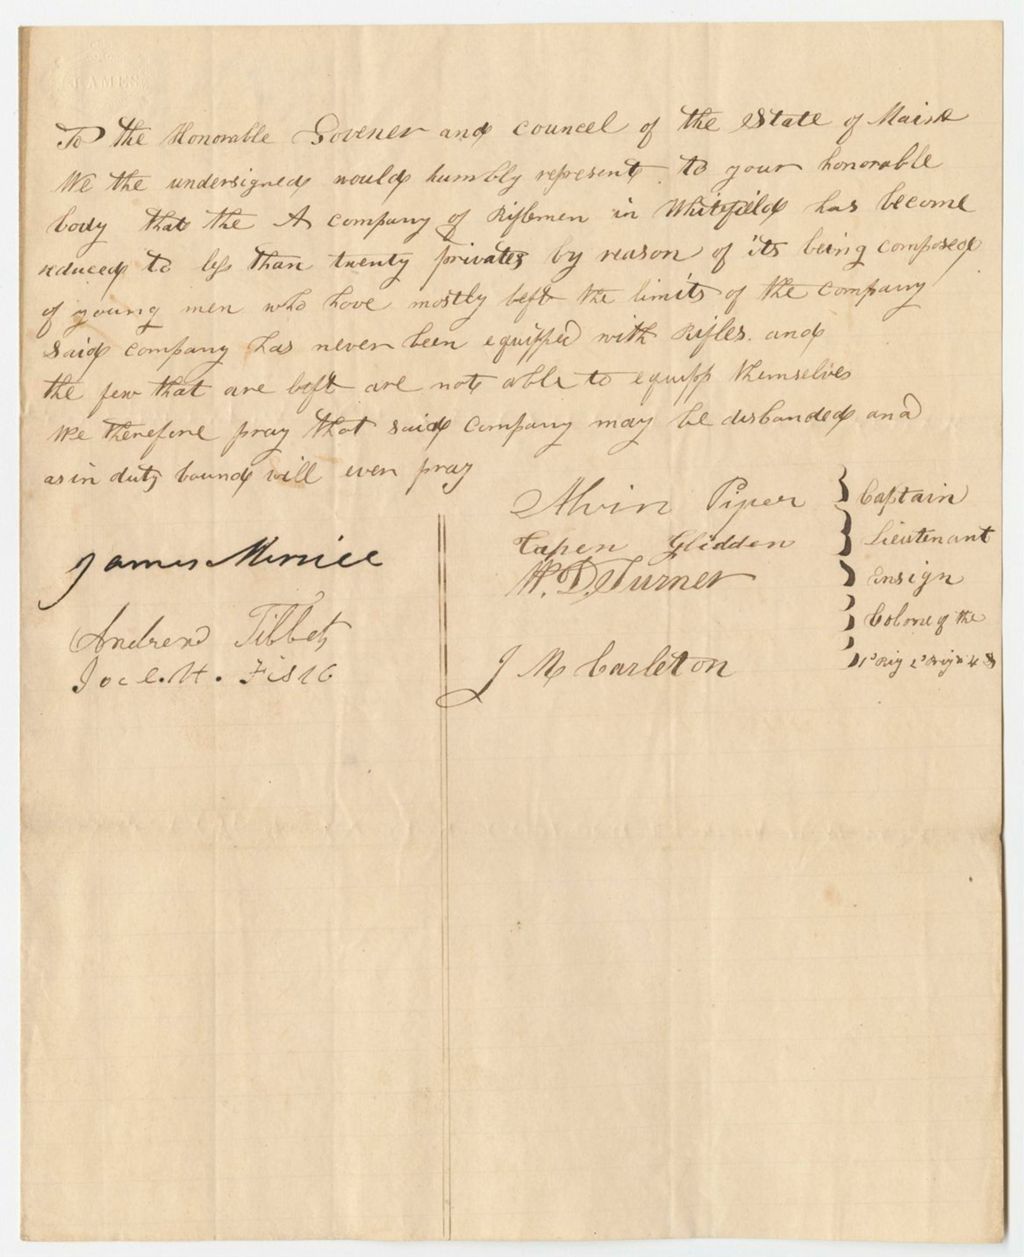 JAMES
To the Honorable Govener and councel of the State of Maine
We the undersigned would humbly represent to your honorable
body that the A company of Riflemen in Whitefield has become
reduced to less than twenty privates by reason of its being composed
of young men who have mostly left the limits of the company
Said company has never been equipped with Rifles and
the few that are left are not able to equipp themselves
We therefore pray that said company may be disbanded and
as in duty bound will ever pray
Alvin Piper Captain
Capen Glidden Lieutenant
W. D. Turner Ensign
J M Carleton Colone of the
1s Rig 2d Brig 4 D
James Merrill
Andrew Tibbets
Joel. H. Fish